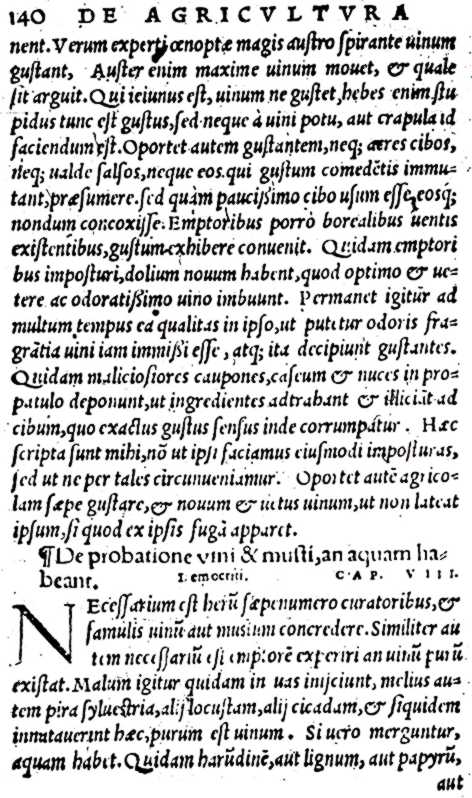 140 DE AGRICVLTVRA
nent. Verum experti œnoptæ magis austro spirante uinum
gustant, Auster enim maxime uinum mouet, & quale
sit arguit. Qui ieiunus est, uinum ne gustet, hebes enim stu
pidus tunc est gustus, sed neque à uini potu, aut crapula id
faciendum est. Oportet autem gustantem, neq; acres cibos,
neq; ualde salsos, neque eos, qui gustum comedētis immu-
tant, præsumere. sed quàm paucißimo cibo usum esse, eosq́;
nondum concoxisse. Emptoribus porrò borealibus uentis
existentibus, gustum exhibere conuenit. Quidam emptori
bus imposturi, dolium nouum habent, quod optimo & ue-
tere ac odoratißimo uino imbuunt. Permanet igitur ad
multum tempus ea qualitas in ipso, ut putetur odoris fra-
grātia uini iam immißi esse, atq; ita decipiunt gustantes.
Quidam maliciosiores caupones, caseum & nuces in pro-
patulo deponunt, ut ingredientes adtrahant & illiciāt ad
cibum, quo exactus gustus sensus inde corrumpatur. Hæc
scripta sunt mihi, nō ut ipsi faciamus eiusmodi imposturas,
sed ut ne per tales circunueniamur. Oportet autē agrico-
lam sæpe gustare, & nouum & uetus uinum, ut non lateat
ipsum, si quod ex ipsis fugā apparet.
¶De probatione vini & musti, an aquam ha-
beant. Democriti. CAP. VIII.
NEcessarium est herū sæpenumero curatoribus, &
famulis uinū aut mustum concredere. Similiter au
tem necessariū est emptorē experiri an uinū purū
existat. Malum igitur quidam in uas inijciunt, melius au-
tem pira syluestria, alij locustam, alij cicadam, & siquidem
innatauerint hæc, purum est uinum. Si uero merguntur,
aquam habet. Quidam harūdinē, aut lignum, aut papyrū,
aut